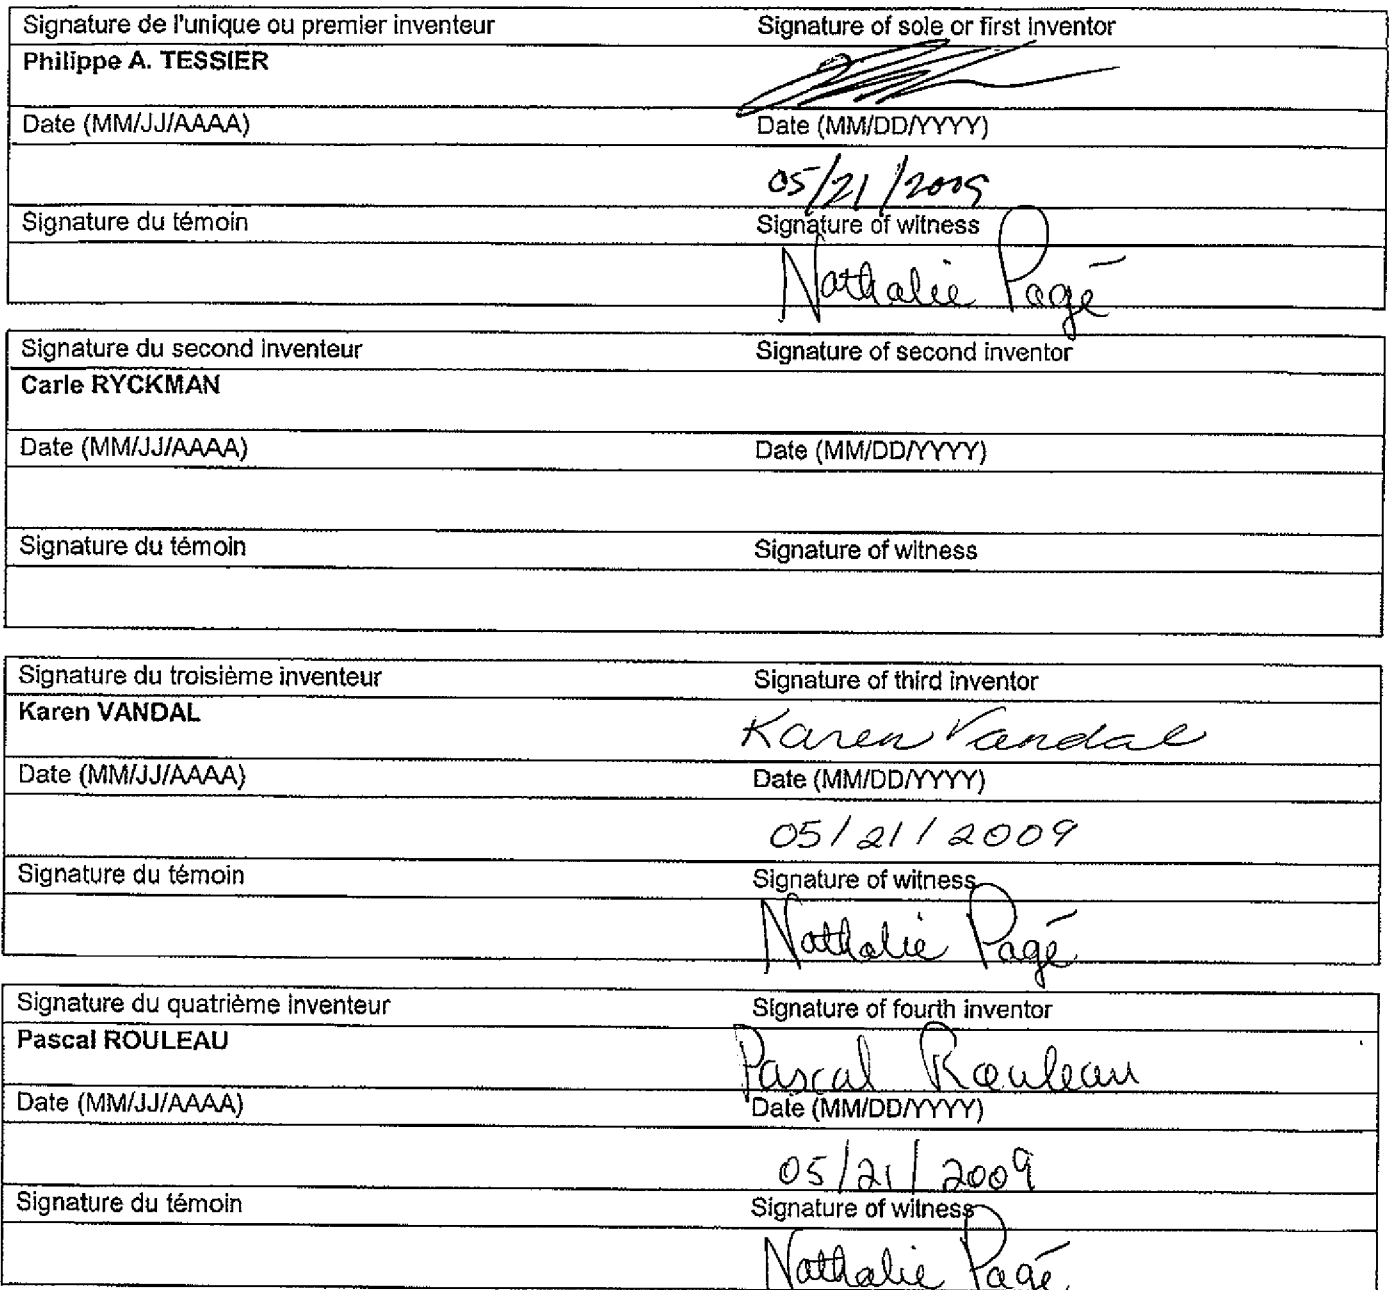 Signature de l'unique ou premier inventeur Signature of sole or first inventor
Philippe A. TESSIER
Date (MM/JJ/AAAA) Date (MM/DD/YYYY)
05/21/2009
Signature du témoin Signature of witness
Nathalie Pagé
Signature du second inventeur Signature of second inventor
Carle RYCKMAN
Date (MM/JJ/AAAA) Date (MM/DD/YYYY)
Signature du témoin Signature of witness
Signature du troisième inventeur Signature of third inventor
Karen VANDAL Karen Vandal
Date (MM/JJ/AAAA) Date (MM/DD/YYYY)
05/21/2009
Signature du témoin Signature of witness
Nathalie Pagé
Signature du quatrième inventeur Signature of fourth inventor
Pascal ROULEAU Pascal Rouleau
Date (MM/JJ/AAAA) Date (MM/DD/YYYY)
05/21/2009
Signature du témoin Signature of witness
Nathalie Pagé